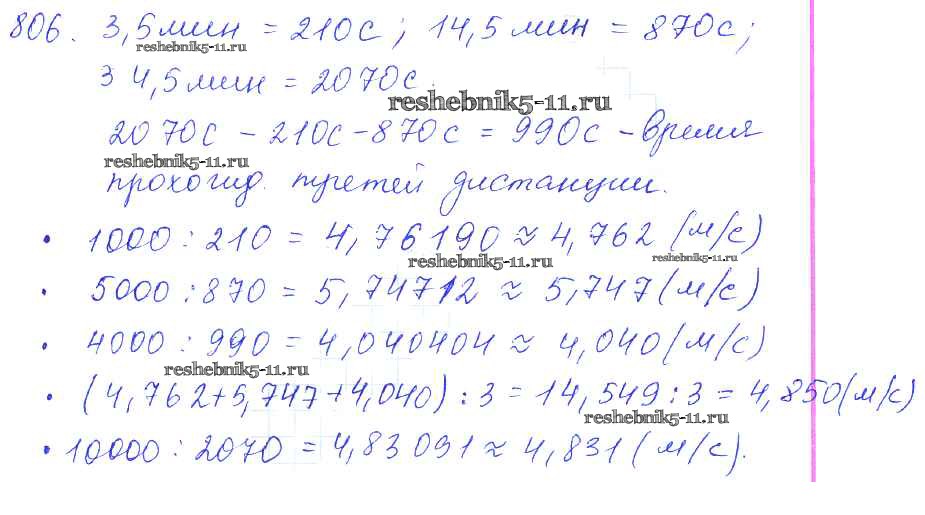 806. 3,5 мин = 210с; 14,5 мин = 870с;
reshebnik5-11.ru
34,5 мин = 2070с.
reshebnik5-11.ru
2070с - 210с - 870с = 990с - время
reshebnik5-11.ru
прохожд. третей дистанции.
• 1000 : 210 = 4,76190 ≈ 4,762 (м/с)
reshebnik5-11.ru reshebnik5-11.ru
• 5000 : 870 = 5,74712 ≈ 5,747 (м/с)
• 4000 : 990 = 4,040404 ≈ 4,040 (м/с)
reshebnik5-11.ru
• (4,762+5,747+4,040) : 3 = 14,549 : 3 = 4,850 (м/с)
reshebnik5-11.ru
• 10000 : 2070 = 4,83091 ≈ 4,831 (м/с).